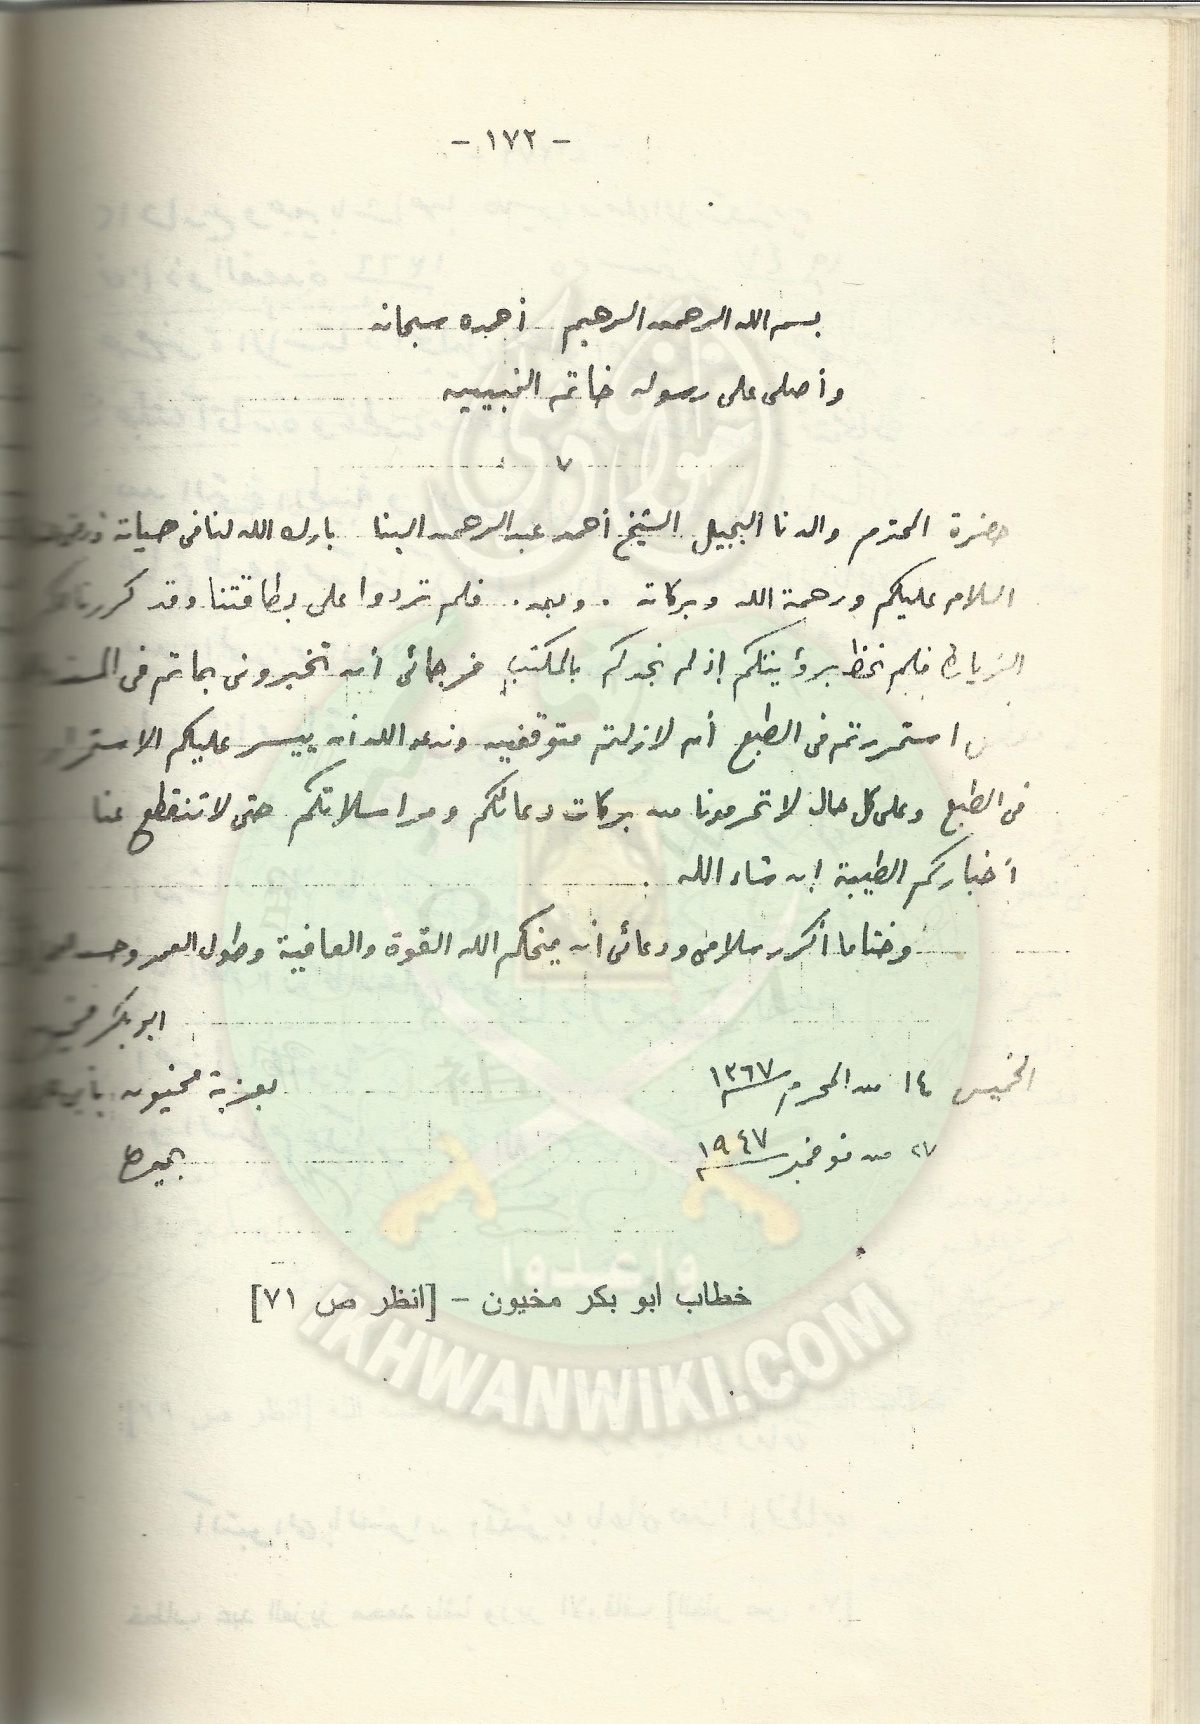 - ١٧٢ -
بسم الله الرحمن الرحيم أحمده سبحانه
وأصلى على رسوله خاتم النبيين
٧
حضرة المحترم والدنا البجيل الشيخ أحمد عبد الرحمن البنا بارك الله لنا فى حياته
السلام عليكم ورحمة الله وبركاته . وبعد . فلم تردوا على بطاقتنا وقد كررنا
الزيارة فلم نحظ برؤيتكم إذ لم نجدكم بالمكتب فرجائى أن تخبرونى بما تم فى
استمررتم فى الطبع أم لازلتم متوقفين وندعو الله أن ييسر عليكم الاستمرار
فى الطبع وعلى كل حال لا تحرمونا من بركات دعائكم ومراسلاتكم حتى لا تنقطع عنا
أخباركم الطيبة إن شاء الله .
وختاما أكرر سلامى ودعائى أن يمنحكم الله القوة والعافية وطول العمر وحسن
ابو بكر
الخميس ١٤ من المحرم ١٣٦٧ بعزبة مخيون
٢٧ من نوفمبر ١٩٤٧ بحيرة
خطاب ابو بكر مخيون - [انظر ص ٧١]
وأعدوا
IKHWANWIKI.COM